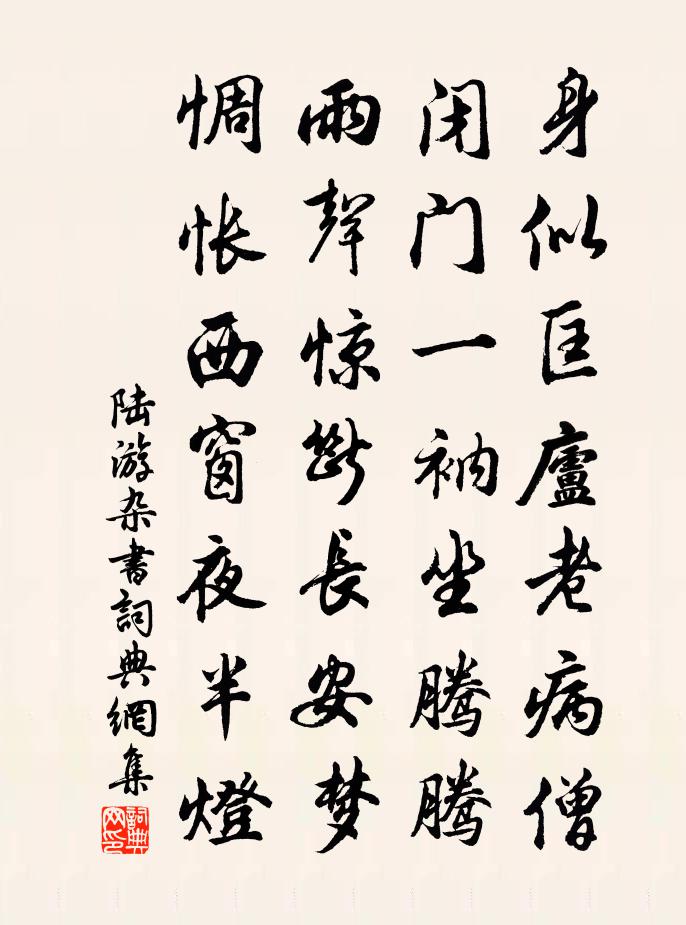 身似匡廬老病僧
闭门一衲坐腾腾
雨聲惊斷長安梦
惆怅西窗夜半燈
陆游杂書詞典網集
詞典网印